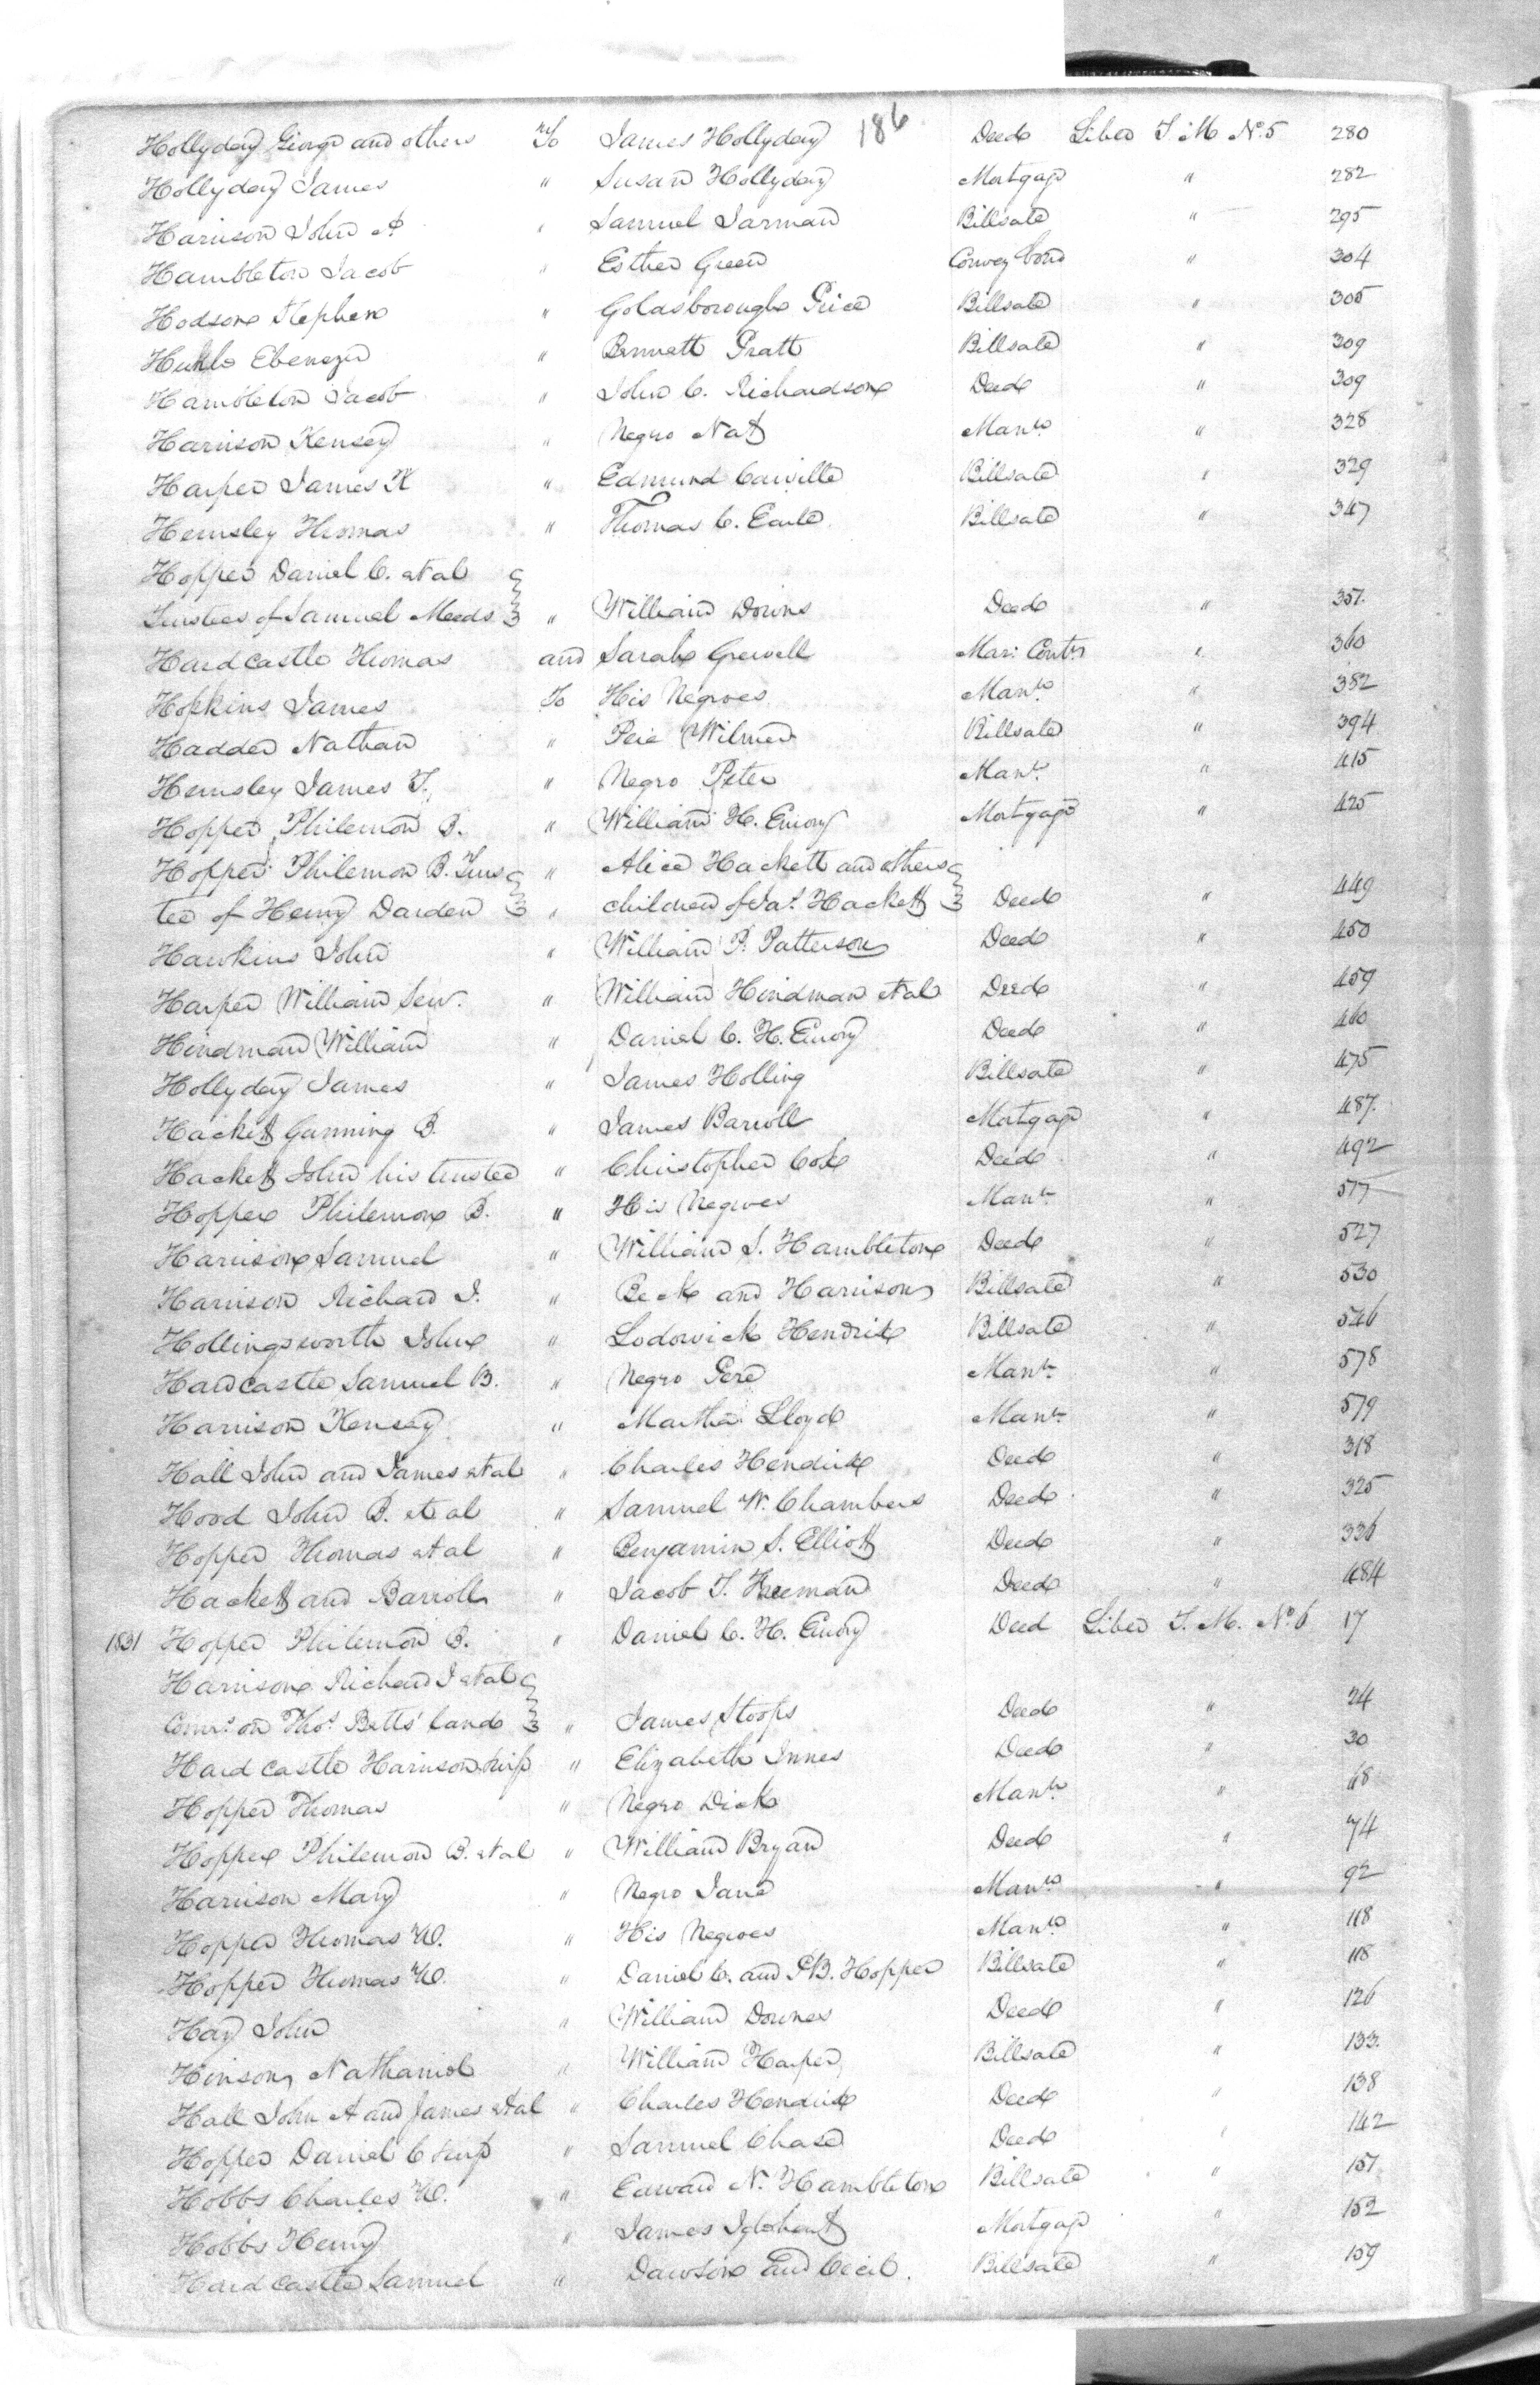 186
Hollyday George and others To James Hollyday Deed Liber T. M No. 5 280
Hollyday James " Susan Hollyday Mortgage " 282
Harrison John A " Samuel Jarman Billsale " 295
Hambleton Jacob " Esther Green Convey bond " 304
Hodson Stephen " Goldsborough Price Billsale " 305
Ebenezer " Bennett Pratt Billsale " 309
Hambleton Jacob " John C. Richardson Deed " 309
Harrison Kensey " Negro Nat Man. " 328
Harper James K " Edmund Carville Billsale " 329
Hemsley Thomas " Thomas C. Earle Billsale " 347
Hopper Daniel C. et al
Trustees of Samuel Meeds " William Downs Deed " 357
Hardcastle Thomas and Sarah Grewell Mar: Contr " 360
Hopkins James To His Negroes Man. " 382
Hadder Nathan " Pere Wilmer Billsale " 394
Hemsley James T. " Negro Peter Man. " 415
Hopper Philemon B. " William H. Emory Mortgage " 425
Hopper Philemon B. Trus " Alice Hackett and others
tee of Henry Darden " children of Jas. Hackett Deed " 449
Hawkins John " William P. Patterson Deed " 450
Harper William Senr. " William Hindman et al Deed " 459
Hindman William " Daniel C. H. Emory Deed " 460
Hollyday James " James Holling Billsale " 475
Hackett Gunning B. " James Barroll Mortgage " 487
Hackett John his trustee " Christopher Cox Deed " 492
Hopper Philemon B. " His Negroes Man. " 517
Harrison Samuel " William S. Hambleton Deed " 527
Harrison Richard I. " Beck and Harrison Billsale " 530
Hollingsworth John " Lodowick Hendrix Billsale " 546
Hardcastle Samuel B. " Negro Pere Man. " 578
Harrison Kensey " Martha Lloyd Man. " 579
Hall John and James et al " Charles Hendrix Deed " 318
Hood John B. et al " Samuel W. Chambers Deed " 325
Hopper Thomas et al " Benjamin S. Elliott Deed " 336
Hackett and Barroll " Jacob T. Freeman Deed " 484
1831 Hopper Philemon B. " Daniel C. H. Emory Deed Liber T. M. No. 6 17
Harrison Richard I et al
Comrs. on Thos. Betts' land " James Stoops Deed " 24
Hardcastle Harrison " Elizabeth Innes Deed " 30
Hopper Thomas " Negro Dick Man. " 68
Hopper Philemon B. et al " William Bryan Deed " 74
Harrison Mary " Negro Jane Man. " 92
Hopper Thomas W. " His Negroes Man. " 118
Hopper Thomas W. " Daniel C. and P. B. Hopper Billsale " 118
Hay John " William Downes Deed " 126
Hinson Nathaniel " William Harper Billsale " 133.
Hall John A and James et al " Charles Hendrix Deed " 138
Hopper Daniel C " Samuel Chase Deed " 142
Hobbs Charles W. " Edward N. Hambleton Billsale " 151
Hobbs Henry " James Iglehart Mortgage " 152
Hardcastle Samuel " Dawson and Cecil. Billsale " 159